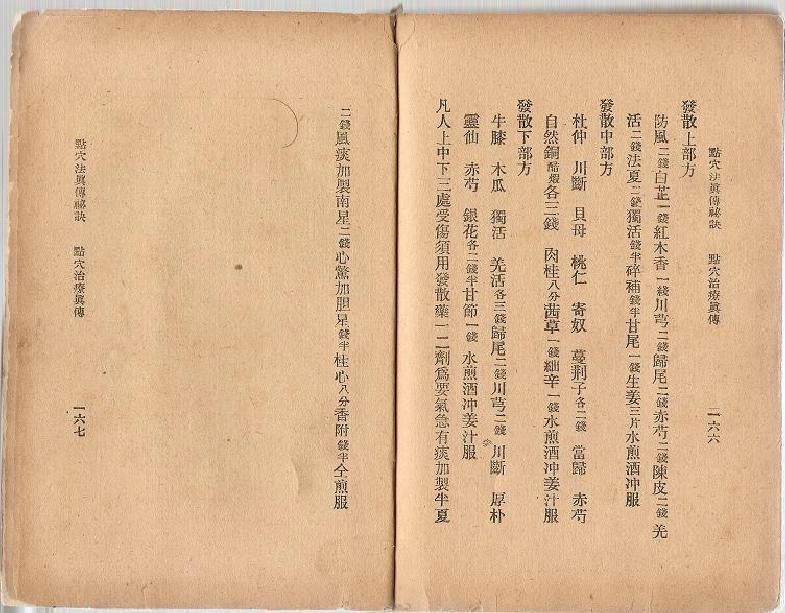 點穴法眞傳祕訣　點穴治療眞傳　一六六
發散上部方
防風二錢白芷一錢紅木香一錢川芎二錢歸尾二錢赤芍二錢陳皮二錢羌
活二錢法夏二錢獨活錢半碎補錢半甘尾一錢生姜三片水煎酒冲服
發散中部方
杜仲　川斷　貝母　桃仁　寄奴　蔓荆子各二錢　當歸　赤芍
自然銅醋煅各三錢　肉桂八分茜草一錢細辛一錢水煎酒冲姜汁服
發散下部方
牛膝　木瓜　獨活　羌活各三錢歸尾二錢川芎二錢　川斷　厚朴
靈仙　赤芍　銀花各二錢半甘節一錢　水煎酒冲姜汁服
凡人上中下三處受傷須用發散藥一二劑爲要氣急有痰加製半夏
二錢風痰加製南星二錢心驚加胆星錢半桂心八分香附錢半仝煎服
點穴法眞傳祕訣　點穴治療眞傳　一六七